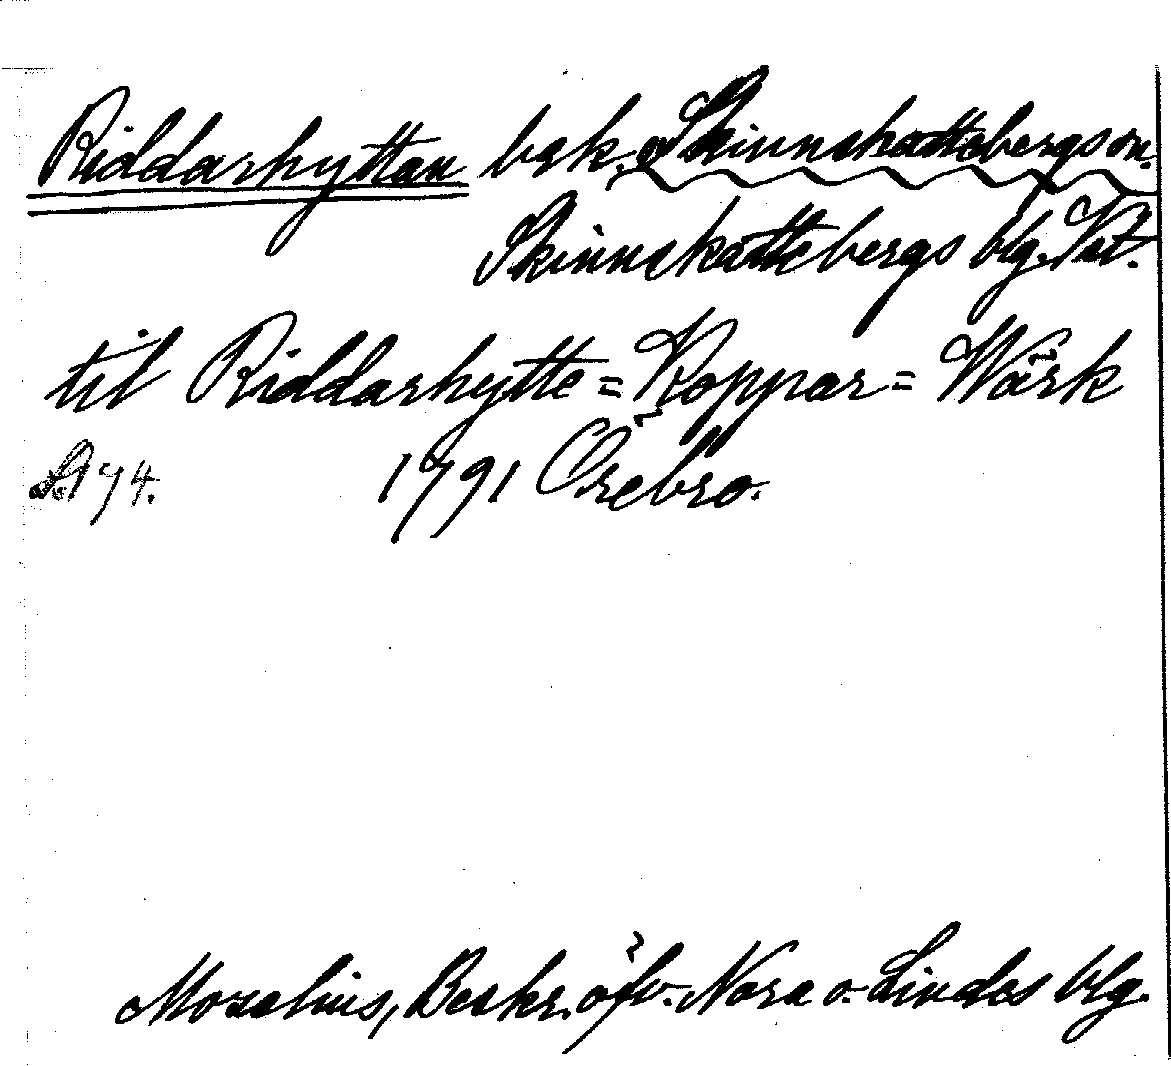 Riddarhyttan bgk. Skinnskattebergs sn.
Skinnskattebergs blg. Vstl.
til Riddarhytte = Koppar = Wärk
S. 74. 1791 Örebro.
Mozelius, Beskr. öfv. Nora o. Lindes blg.